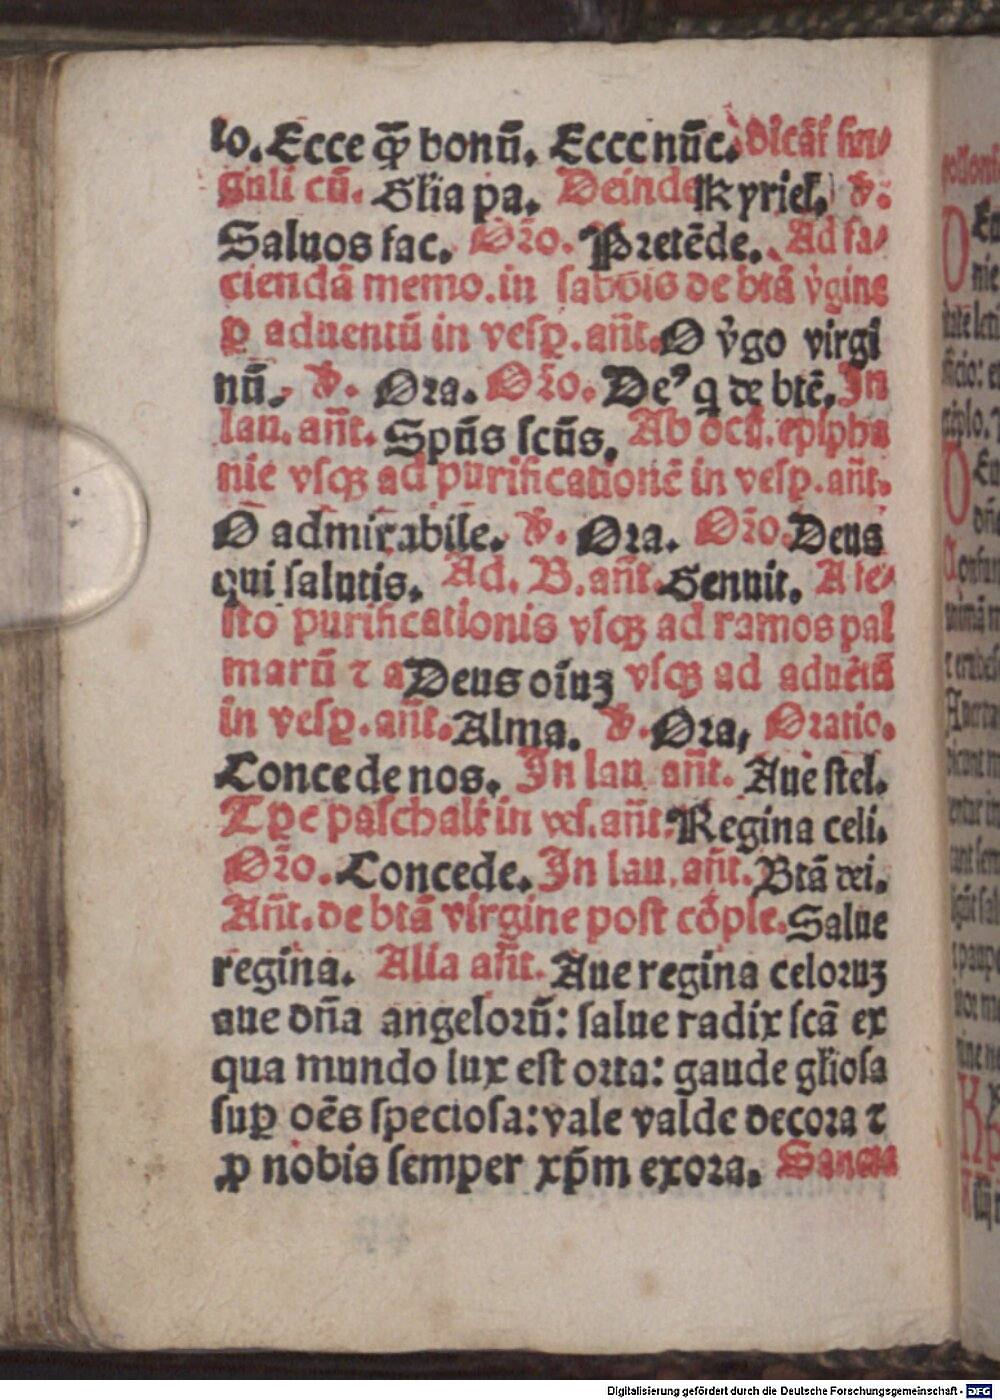 lo. Ecce qȝ̄ bonū. Eccc nūc. dicāt sin
guli cū. Gl̄ia pa. Deinde kyriel̄. ℣.
Saluos fac. Or̄o. Pretēde. Ad fa
ciendā memo. in sabbis de btā v̓gine
ꝑ aduentū in vesꝑ. an̄t. O v̓go virgi
nū. ℣. Ora. Or̄o. De⁹ q de btē. In
lau. an̄t. Spūs scūs. Ab octa. epipha
nie vsqȝ ad purificationē in vesꝑ. an̄t.
O admirabile. ℣. Ora. Or̄o. Deus
qui salutis. Ad. B. an̄t. Genuit. A fe
sto purificationis vsqȝ ad ramos pal
marū ⁊ a Deus oīuꝫ vsqȝ ad aduētū
in vesꝑ. an̄t. Alma. ℣. Ora, Oratio.
Concede nos. In lau an̄t. Aue stel.
Tꝑe paschali in ves. an̄t. Regina celi.
Or̄o. Concede. In lau. an̄t. Btā dei.
An̄t. de btā virgine post cōple. Salue
regina. Alia an̄t. Aue regina celoruꝫ
aue dn̄a angelorū: salue radix scā ex
qua mundo lux est orta: gaude gl̄iosa
suꝑ oēs speciosa: vale valde decora ⁊
ꝓ nobis semper xp̄m exora. Sancta
Digitalisierung gefördert durch die Deutsche Forschungsgemeinschaft - DFG